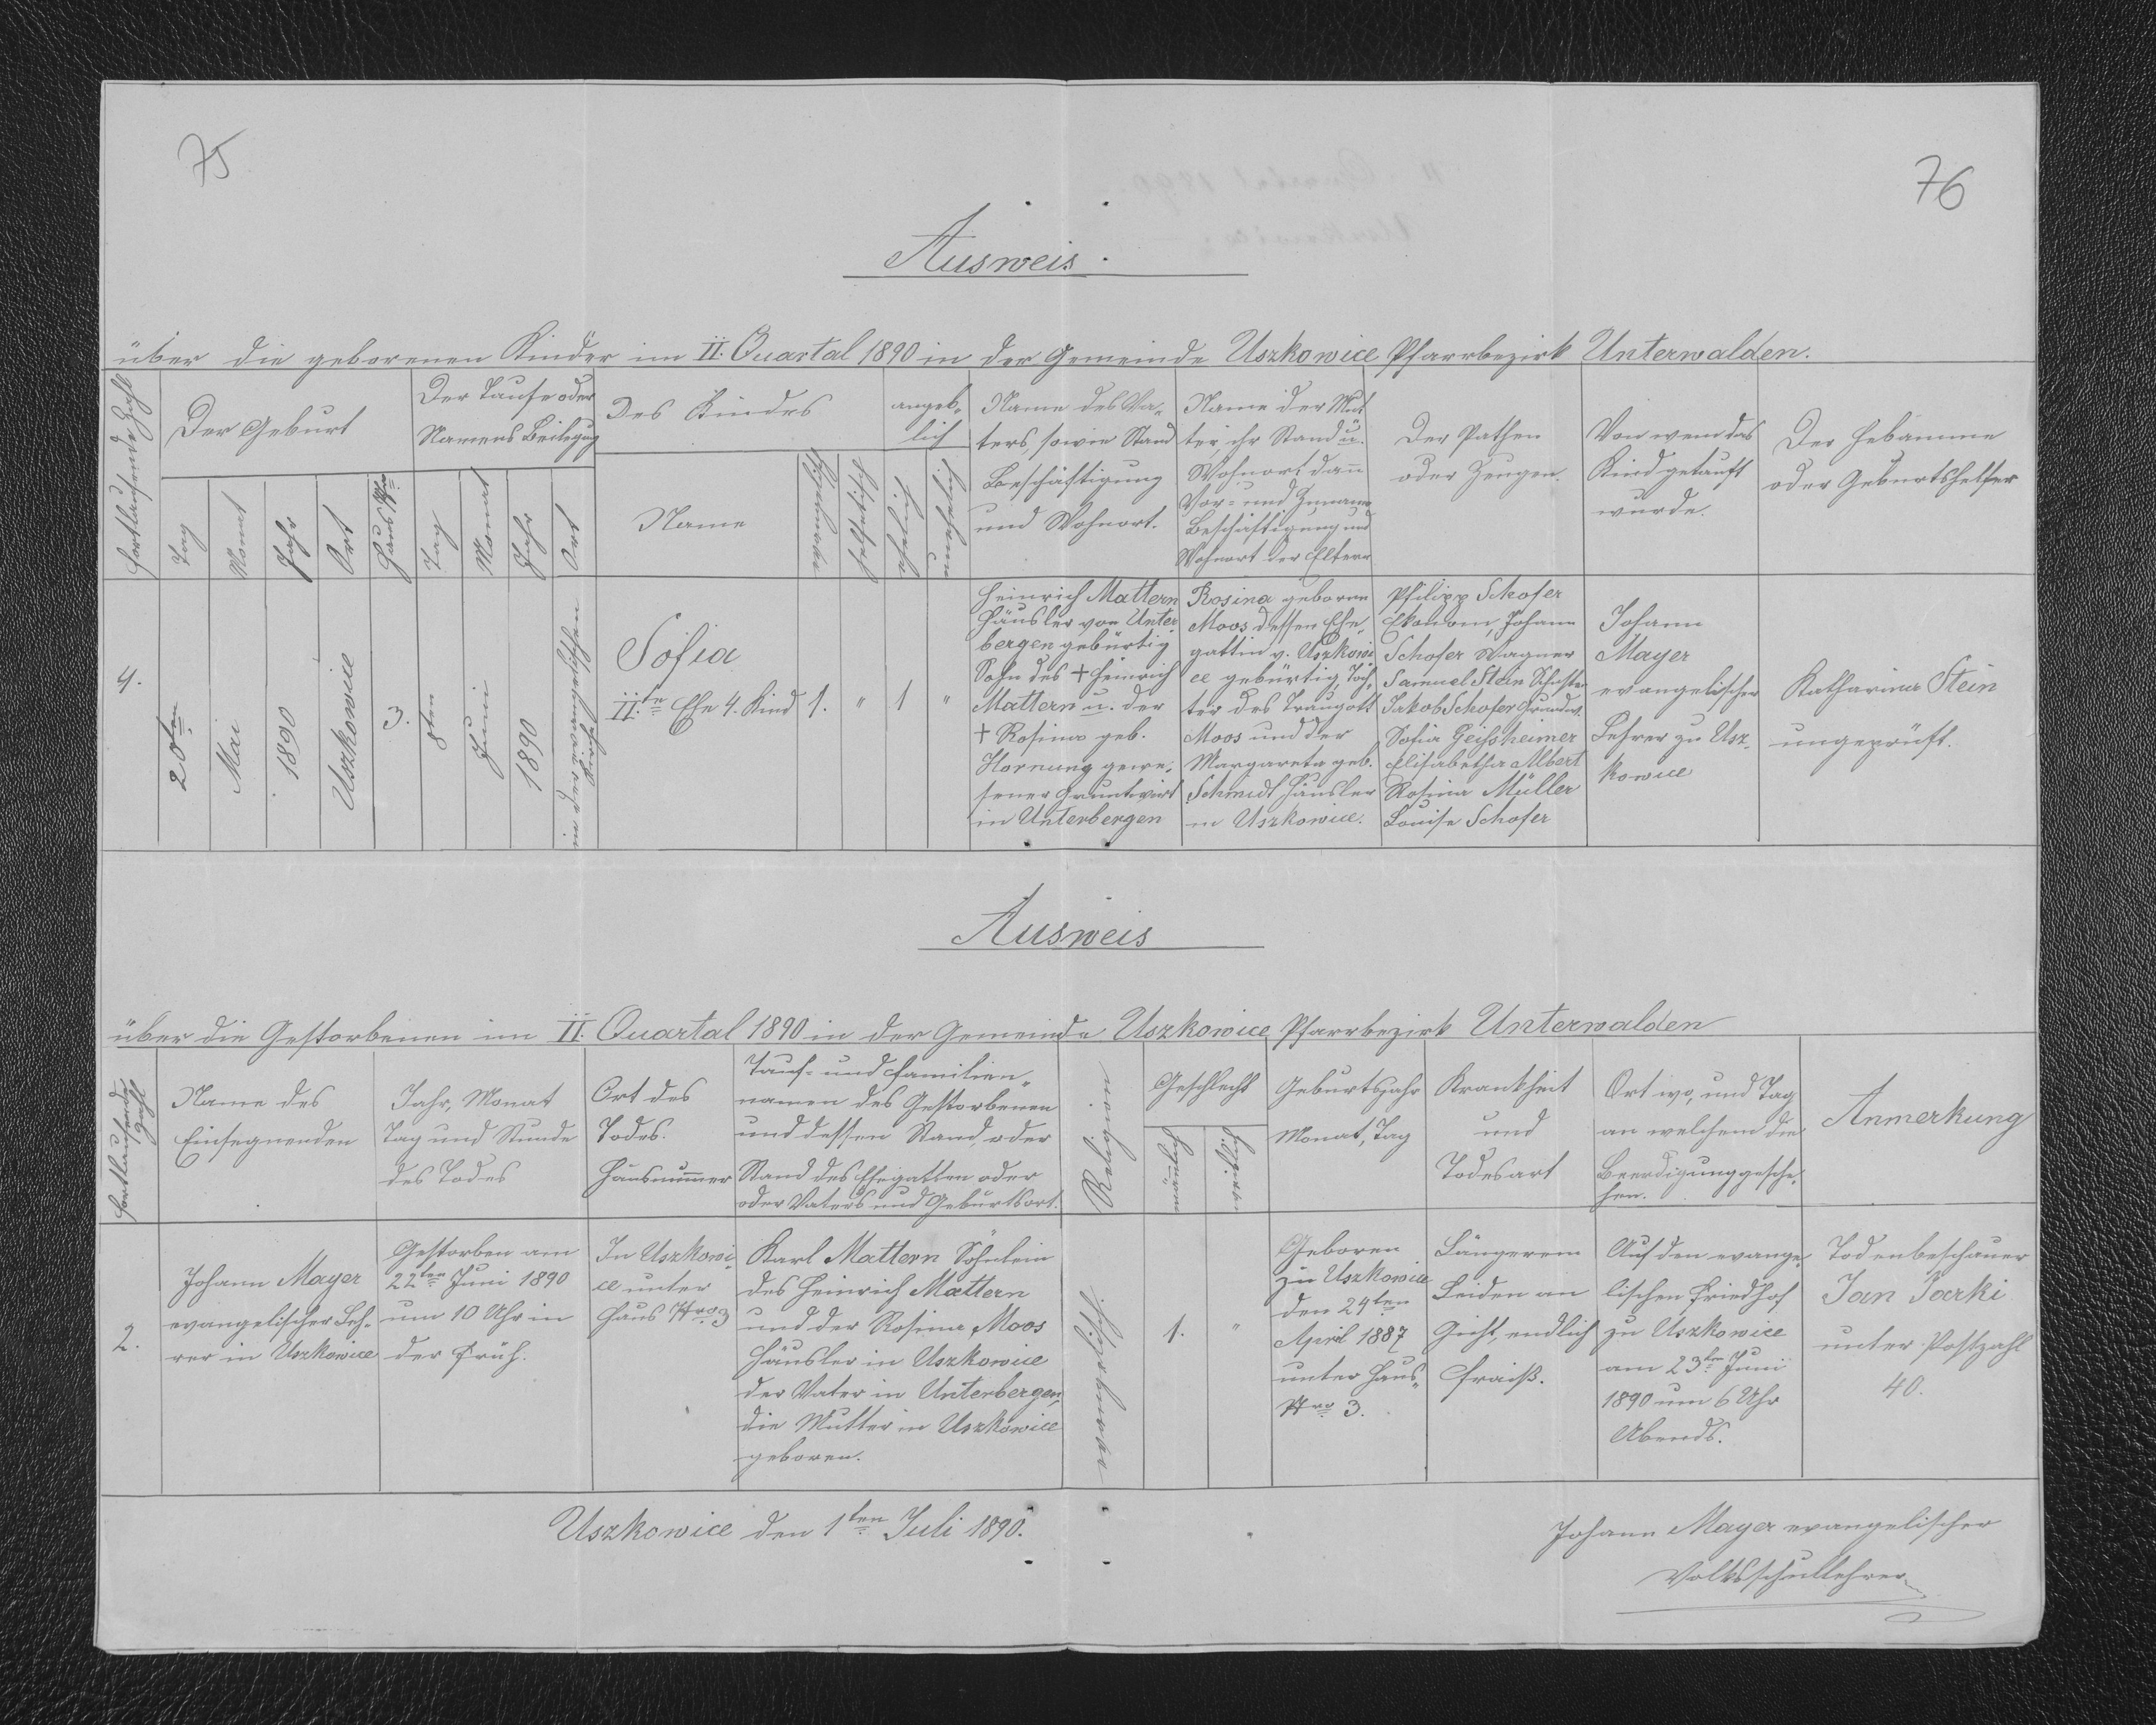 75
76
Ausweis.
über die geborenen Kinder im II. Quartal 1890 in der Gemeinde Uszkowice Pfarrbezirk Unterwalden.
Fortlaufende Zahl
Der Geburt
Tag
Monat
Jahr
Ort
Haus Nro
Der Taufe oder
Namens Beilegung
Tag
Monat
Jahr
Ort
Des Kindes
Name
evangelisch
helvetisch
angeb-
lich
ehelich
unehelich
Name des Va-
ters, sowie Stand
Beschäftigung
und Wohnort.
Name der Mut
ter, ihr Stand u.
Wohnort dann
Vor- und Zuname
Beschäftigung und
Wohnort der Eltern
Der Pathen
oder Zeugen.
Von wem das
Kind getauft
wurde.
Der Hebamme
oder Geburtshelfer
4.
20ten
Mai
1890
Uszkowice
3.
8ten
Juni
1890
in der evangelischen
Kirche
Sofia
II.te Ehe 4. Kind
1.
"
1
"
Heinrich Mattern
Häusler von Unter-
bergen gebürtig
Sohn des + Heinrich
Mattern u. der
+ Rosina geb.
Hornung gewe-
sener Gruntwirt
in Unterbergen
Rosina geborne
Moos dessen Ehe-
gattin v. Uszkowi
ce gebürtig, Toch-
ter des Traugott
Moos und der
Margareta geb.
Schmidt Häusler
in Uszkowice.
Philipp Schofer
Ekonom, Johann
Schofer Wagner
Samuel Stein Schuster
Jakob Schofer Grundw.
Sofia Geissheimer
Elisabetha Albert
Rosina Müller
Louise Schofer
Johann
Mayer
evangelischer
Lehrer zu Usz-
kowice
Katharina Stein
ungeprüft.
Ausweis
über die Gestorbenen im II. Quartal 1890 in der Gemeinde Uszkowice Pfarrbezirk Unterwalden
Fortlaufende
Zahl
Name des
Einsegnenden
Jahr, Monat
Tag und Stunde
des Todes
Ort des
Todes.
Hausnummer
Tauf- und Familien-
namen des Gestorbenen
und dessen Stand oder
Stand des Ehegatten oder
oder Vaters und Geburtsort.
Religion
Geschlecht
männlich
weiblich
Geburtsjahr
Monat, Tag
Krankheit
und
Todesart
Ort wo, und Tag
an welchem die
Beerdigung gesche-
hen.
Anmerkung
2.
Johann Mayer
evangelischer Leh-
rer in Uszkowice
Gestorben am
22ten Juni 1890
um 10 Uhr in
der Früh.
In Uszkowi-
ce unter
Haus Nro 3
Karl Mattern Söhnlein
des Heinrich Mattern
und der Rosina Moos
Häusler in Uszkowice
der Vater in Unterbergen,
die Mutter in Uszkowice
geboren.
evangelisch
1.
"
Geboren
zu Uszkowice
den 24ten
April 1887
unter Haus-
Nro 3.
Längerem
Leiden an
Gicht, endlich
Fraiß.
Auf den evange-
lischen Friedhof
zu Uszkowice
am 23ten Juni
1890 um 6 Uhr
Abends.
Todenbeschauer
Jan Jarki
unter Postzahl
40.
Uszkowice den 1ten Juli 1890.
Johann Mayer evangelischer
Volksschullehrer